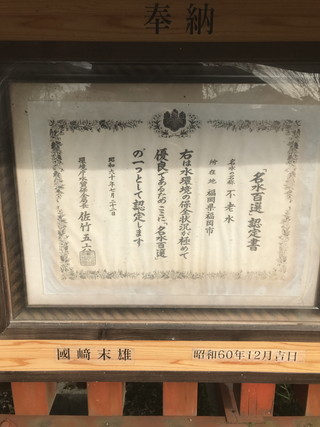 奉納
「名水百選」認定書
名水の名称 不老水
所在地 福岡県福岡市
右は水環境の保全状況が極めて
優良であるためここに、「名水百選」
の一つとして認定します
昭和六十年七月二十二日
環境庁水質保全局長 佐竹五六
國﨑末雄
昭和60年12月吉日